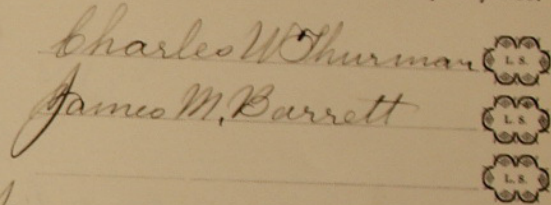 Charles W Thurman L. S.
James M. Barrett L. S.
L. S.